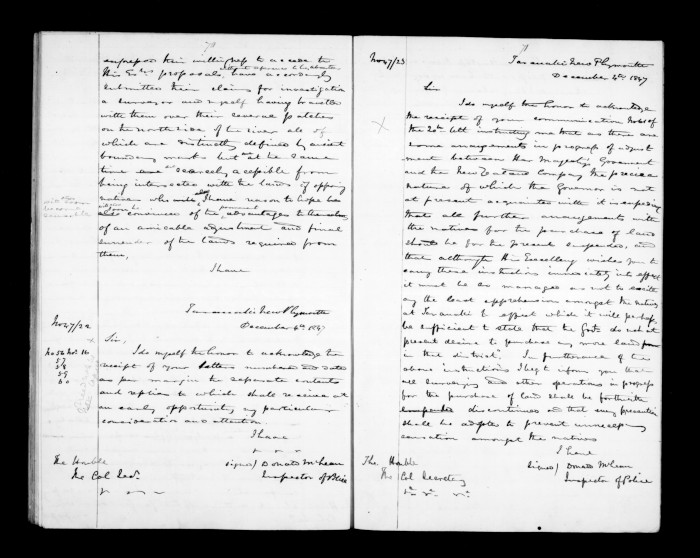 70
expressed their willingness to accede to
His Excys proposals, have accordingly
submitted their claims for investigation
a surveyor and myself having travelled
with them over their several patches
on the north side of the river all of
which are distinctly defined by ancient
boundary marks but at the same
time are scarcely accessible from
being intersected with the lands of opposing
natives who I have reason to hope
convinces of the advantages to themselves
of an amicable adjustment and final
surrender of the lands required from
them,
I have
No 47/22
Taranaki New Plymouth
December 4th 1847
Sir,
I do myself the honor to acknowledge the
No 56 Novr 16
57
58
59
60
receipt of your letters numbered and dated
as per margin the separate contents
and replies to which shall receive at
an early opportunity my particular
consideration and attention.
I have
signed/ Donald McLean
Inspector of Police
The Honble
The Col Secy.
71
No 47/23
Taranaki New Plymouth
December 4th 1847
Sir
I do myself the honor to acknowledge
the receipt of your communication No 61 of
the 20th Ult instructing me that as there are
some arrangements in progress of adjust
ment between Her Majesty's Government
and the New Zealand Company the precise
nature of which the Governor is not
at present acquainted with it is expedient
that all further arrangements with
the natives for the purchase of land
should be for the present suspended, and
that although His Excellency wishes you to
carry these instructions immediately into effect
it must be so managed as not to excite
any the least apprehension amongst the natives
at Taranaki to effect which it will perhaps
be sufficient to state that the Govt do not at
present desire to purchase any more land
in that district. In furtherance of the
above instructions I beg to inform you that
all surveying and other operations in progress
for the purchase of land shall be forthwith
suspended discontinued and that every precaution
shall be adopted to prevent unnecessary
sensation amongst the natives
I have
signed/ Donald McLean
Inspector of Police
The Honble
The Col Secretary